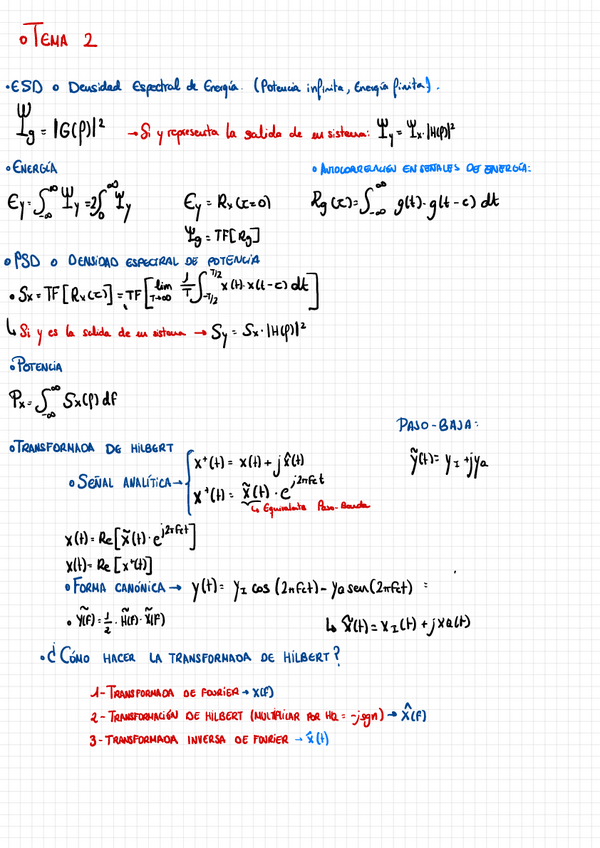 • TEMA 2
• ESD o Densidad Espectral de Energía. (Potencia infinita, Energía finita).
Ψg = |G(f)|² → Si y representa la salida de un sistema: Ψy = Ψx · |H(f)|²
• ENERGÍA
• AUTOCORRELACIÓN EN SEÑALES DE ENERGÍA:
Ey = ∫_{-∞}^{∞} Ψy = 2∫_{0}^{∞} Ψy
Ey = Rx(τ=0)
Rg(τ) = ∫_{-∞}^{∞} g(t) · g(t-τ) dt
Ψg = TF[Rg]
• PSD o DENSIDAD ESPECTRAL DE POTENCIA
• Sx = TF[Rx(τ)] = TF[lim_{T→∞} 1/T ∫_{-T/2}^{T/2} x(t) · x(t-τ) dt]
↳ Si y es la salida de un sistema → Sy = Sx · |H(f)|²
• POTENCIA
Px = ∫_{-∞}^{∞} Sx(f) df
PASO-BAJA:
• TRANSFORMADA DE HILBERT
ỹ(t) = yI + jyQ
• SEÑAL ANALÍTICA → { x⁺(t) = x(t) + j x̂(t)
x⁺(t) = x̃(t) · e^{j2πfct}
↳ Equivalente Paso-Banda
x(t) = Re[x̃(t) · e^{j2πfct}]
x(t) = Re[x⁺(t)]
• FORMA CANÓNICA → y(t) = yI cos(2πfct) - yQ sen(2πfct) =
• Ỹ(F) = 1/2 · H̃(F) · X̃(F)
↳ x̃(t) = xI(t) + jxQ(t)
• ¿CÓMO HACER LA TRANSFORMADA DE HILBERT?
1- TRANSFORMADA DE FOURIER → X(F)
2- TRANSFORMACIÓN DE HILBERT (MULTIPLICAR POR HQ = -jsgn) → X̂(F)
3- TRANSFORMADA INVERSA DE FOURIER → x̂(t)